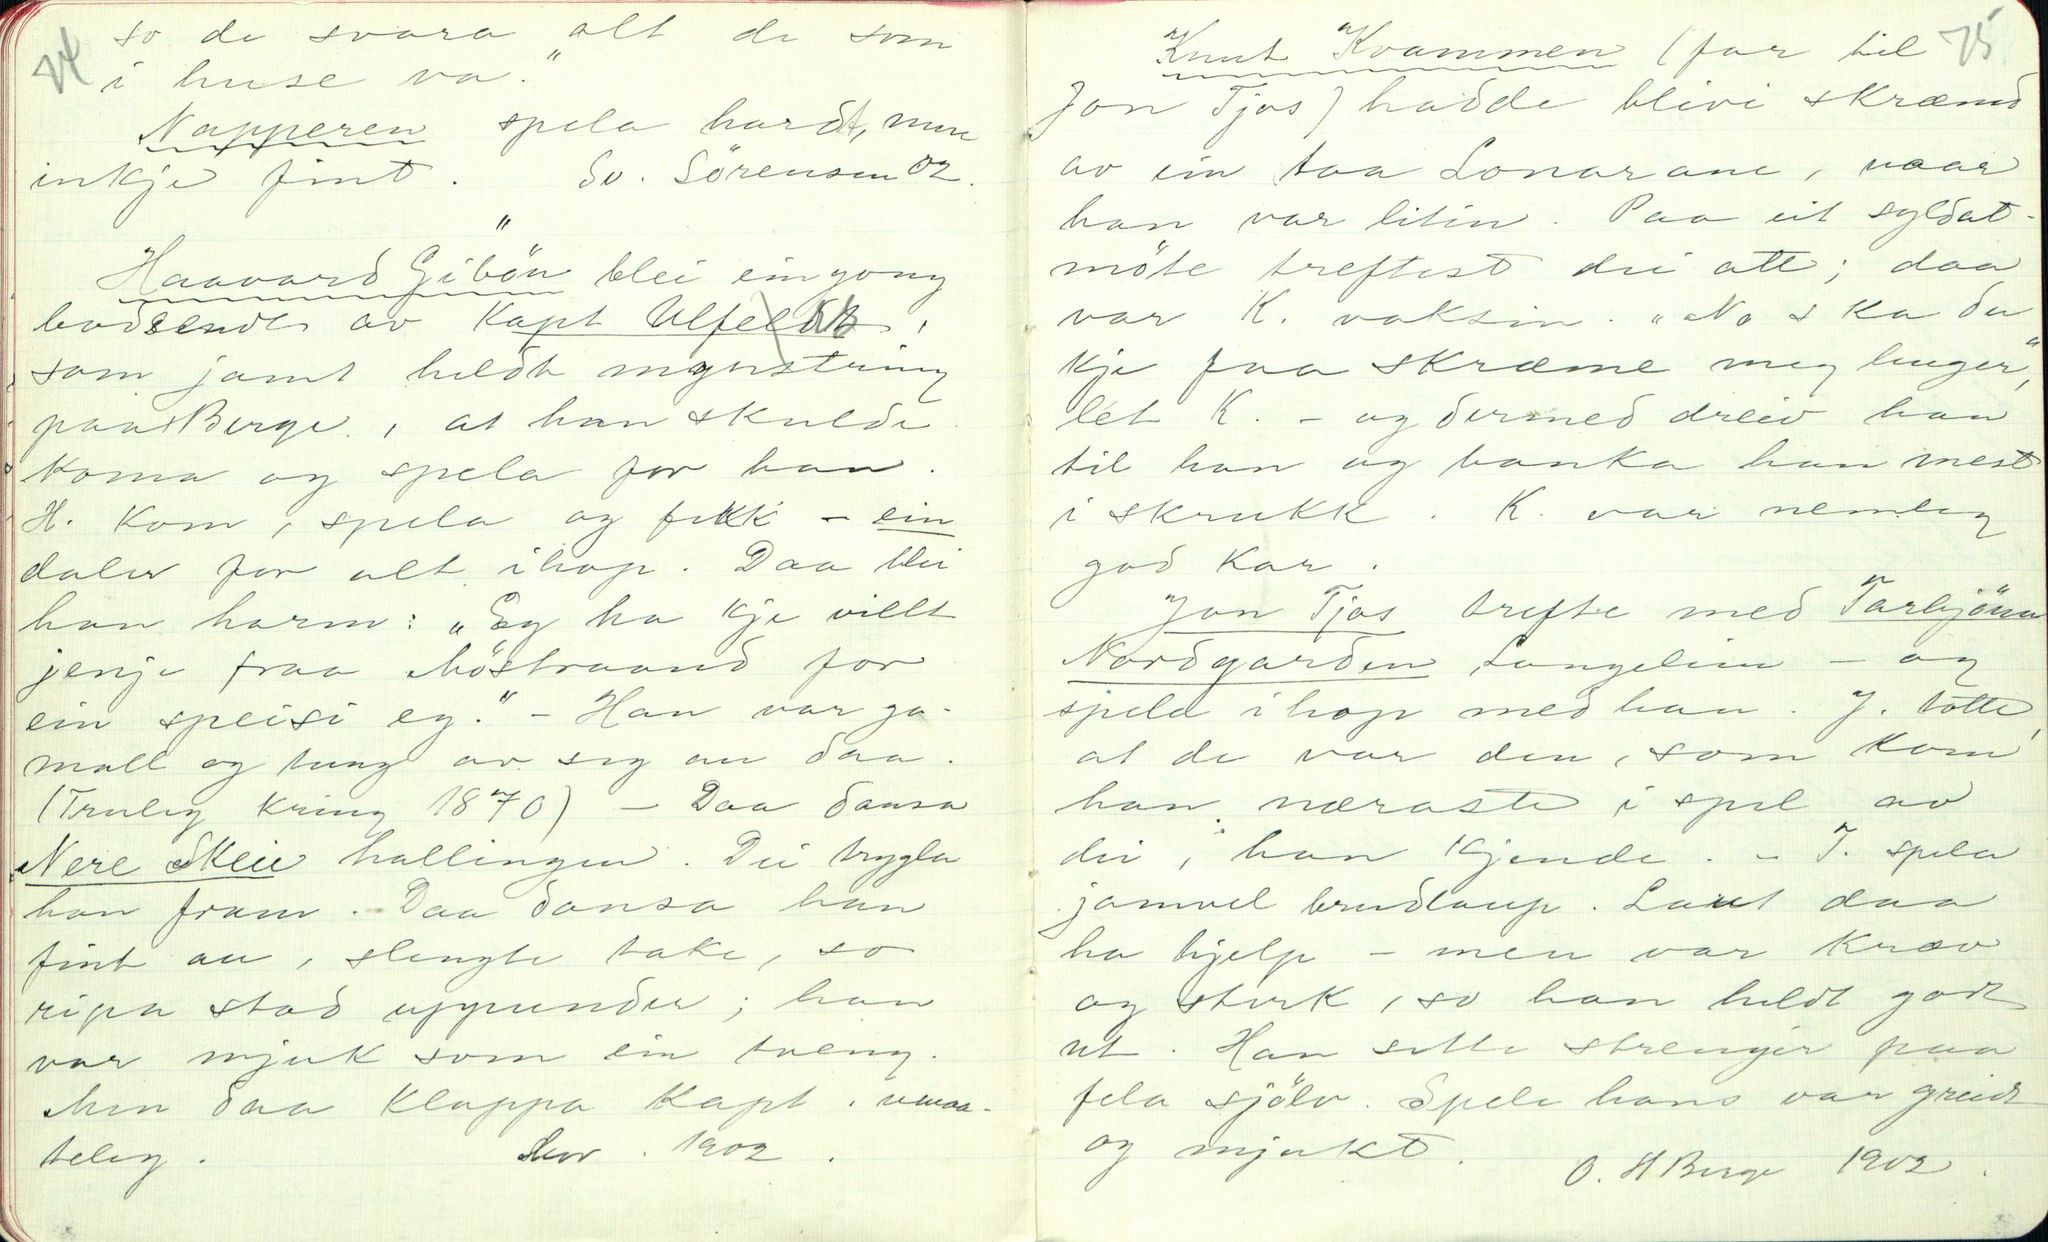 74
so de svara "alt de som
i huse va."
Napperen spela hardt, men
inkje fint. Sv. Sörensen 02.
"
Haavard Giböen blei ein gong
bodsendt av Kapt Ulfeldt,
som jamt heldt mynstring
paa Berge, at han skulde
koma og spela for han.
H. kom, spela og fekk - ein
daler for alt ihop. Daa blei
han harm: "Eg ha kje villt
jenje fraa Möstraand for
ein speisi eg." - Han var ga-
mall og tung av seg au daa.
(Truleg kring 1870) - Daa dansa
Nere Skeie hallingen. Dei trygla
han fram. Daa dansa han
fint au, slengte take, so
ripa stod uppunder; han
var mjuk som ein tveng.
Men daa klappa Kapt. uvaa-
teleg. 1902.
75
Knut Kvammen (far til
Jon Tjos) hadde blivi skræmd
av ein taa Lonarane, naar
han var litin. Paa eit syldat-
möte treftest dei att; daa
var K. vaksin. "No ska du
kje faa skræme meg lenger",
lét K. - og dermed dreiv han
til han og banka han mest
i skrukk. K. var nemleg
god kar.
Jon Tjos trefte med Tarbjönn
Nordgarden Langeleim - og
spela ihop med han. J. totte,
at de var den, som kom
han næraste i spel av
dei, han kjende. - J. spela
jamvel brudlaup. Laut daa
ha hjelp - men var kræv
og sterk, so han heldt godt
ut. Han sette strenger paa
fela sjölv. Spele hans var greidt
og mjukt. O. H Berge 1902.